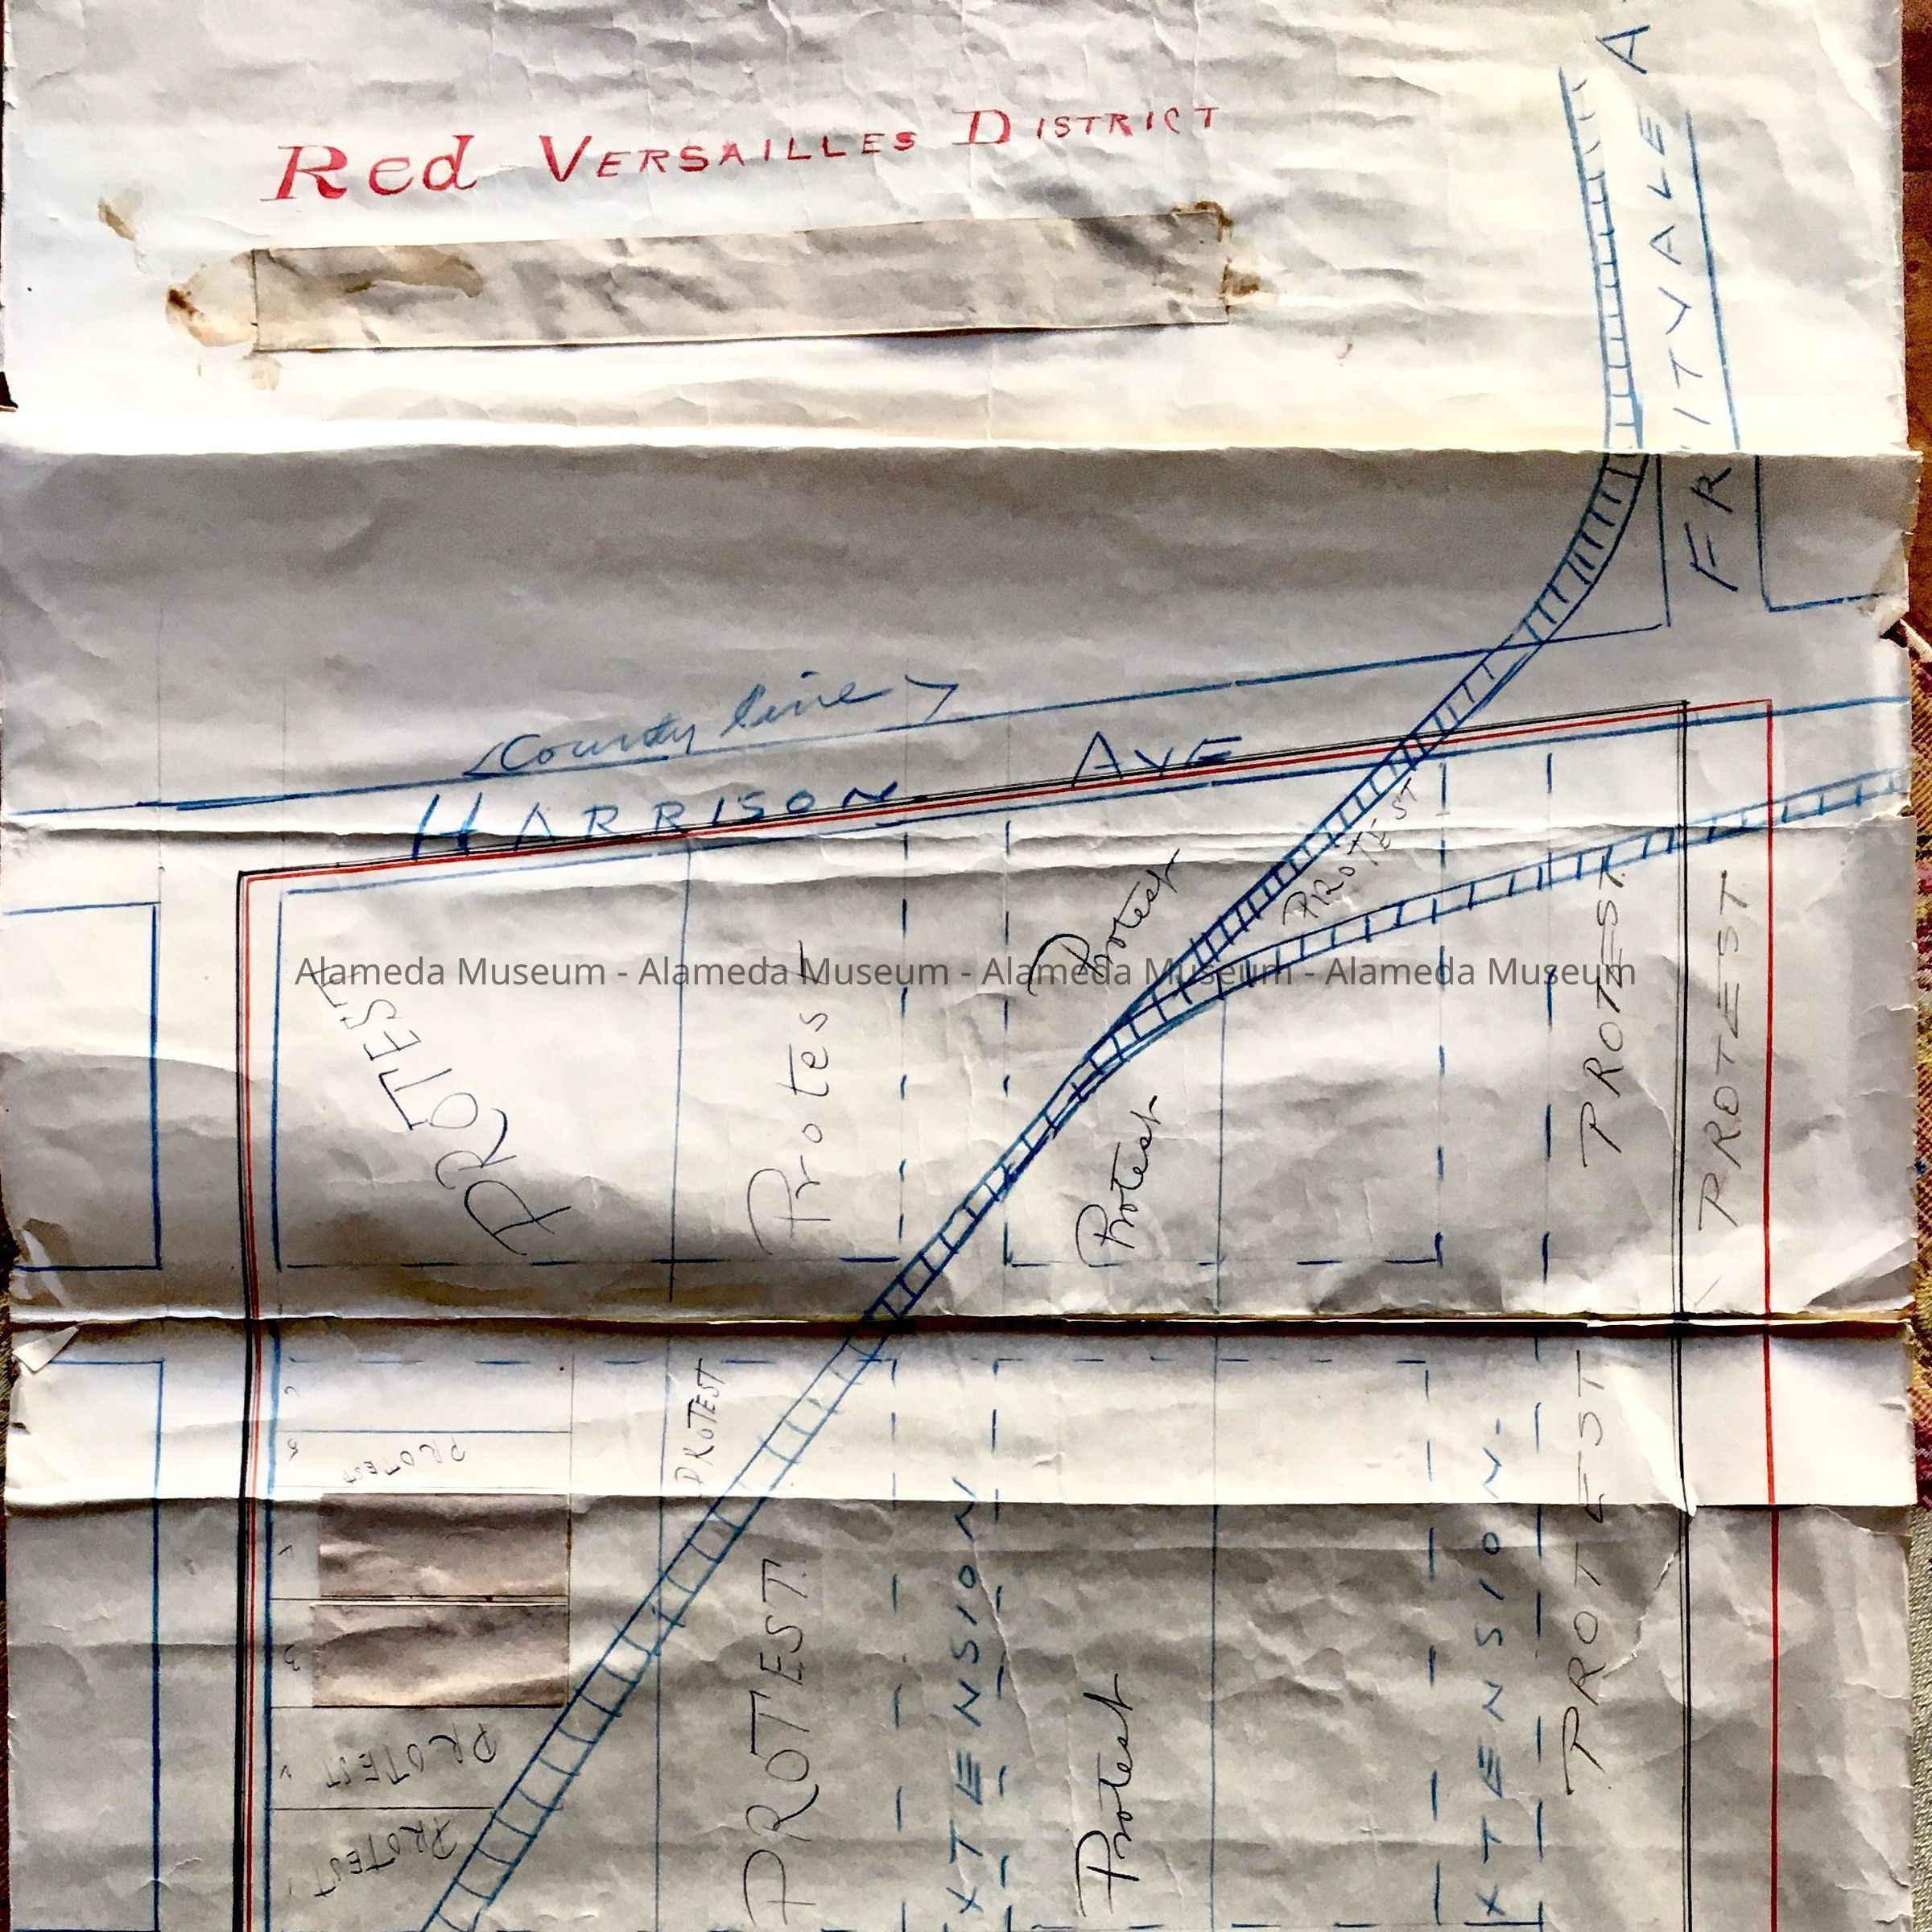 Red VERSAILLES DISTRICT
FRUITVALE A
County line
HARRISON AVE
PROTEST
Protest
Protest
PROTEST
PROTEST
PROTEST
Alameda Museum - Alameda Museum - Alameda Museum - Alameda Museum
Protest
PROTEST
PROTEST
PROTEST
3
PROTEST
PROTEST
PROTEST
XTENSION
Protest
XTENSION.
PROTEST